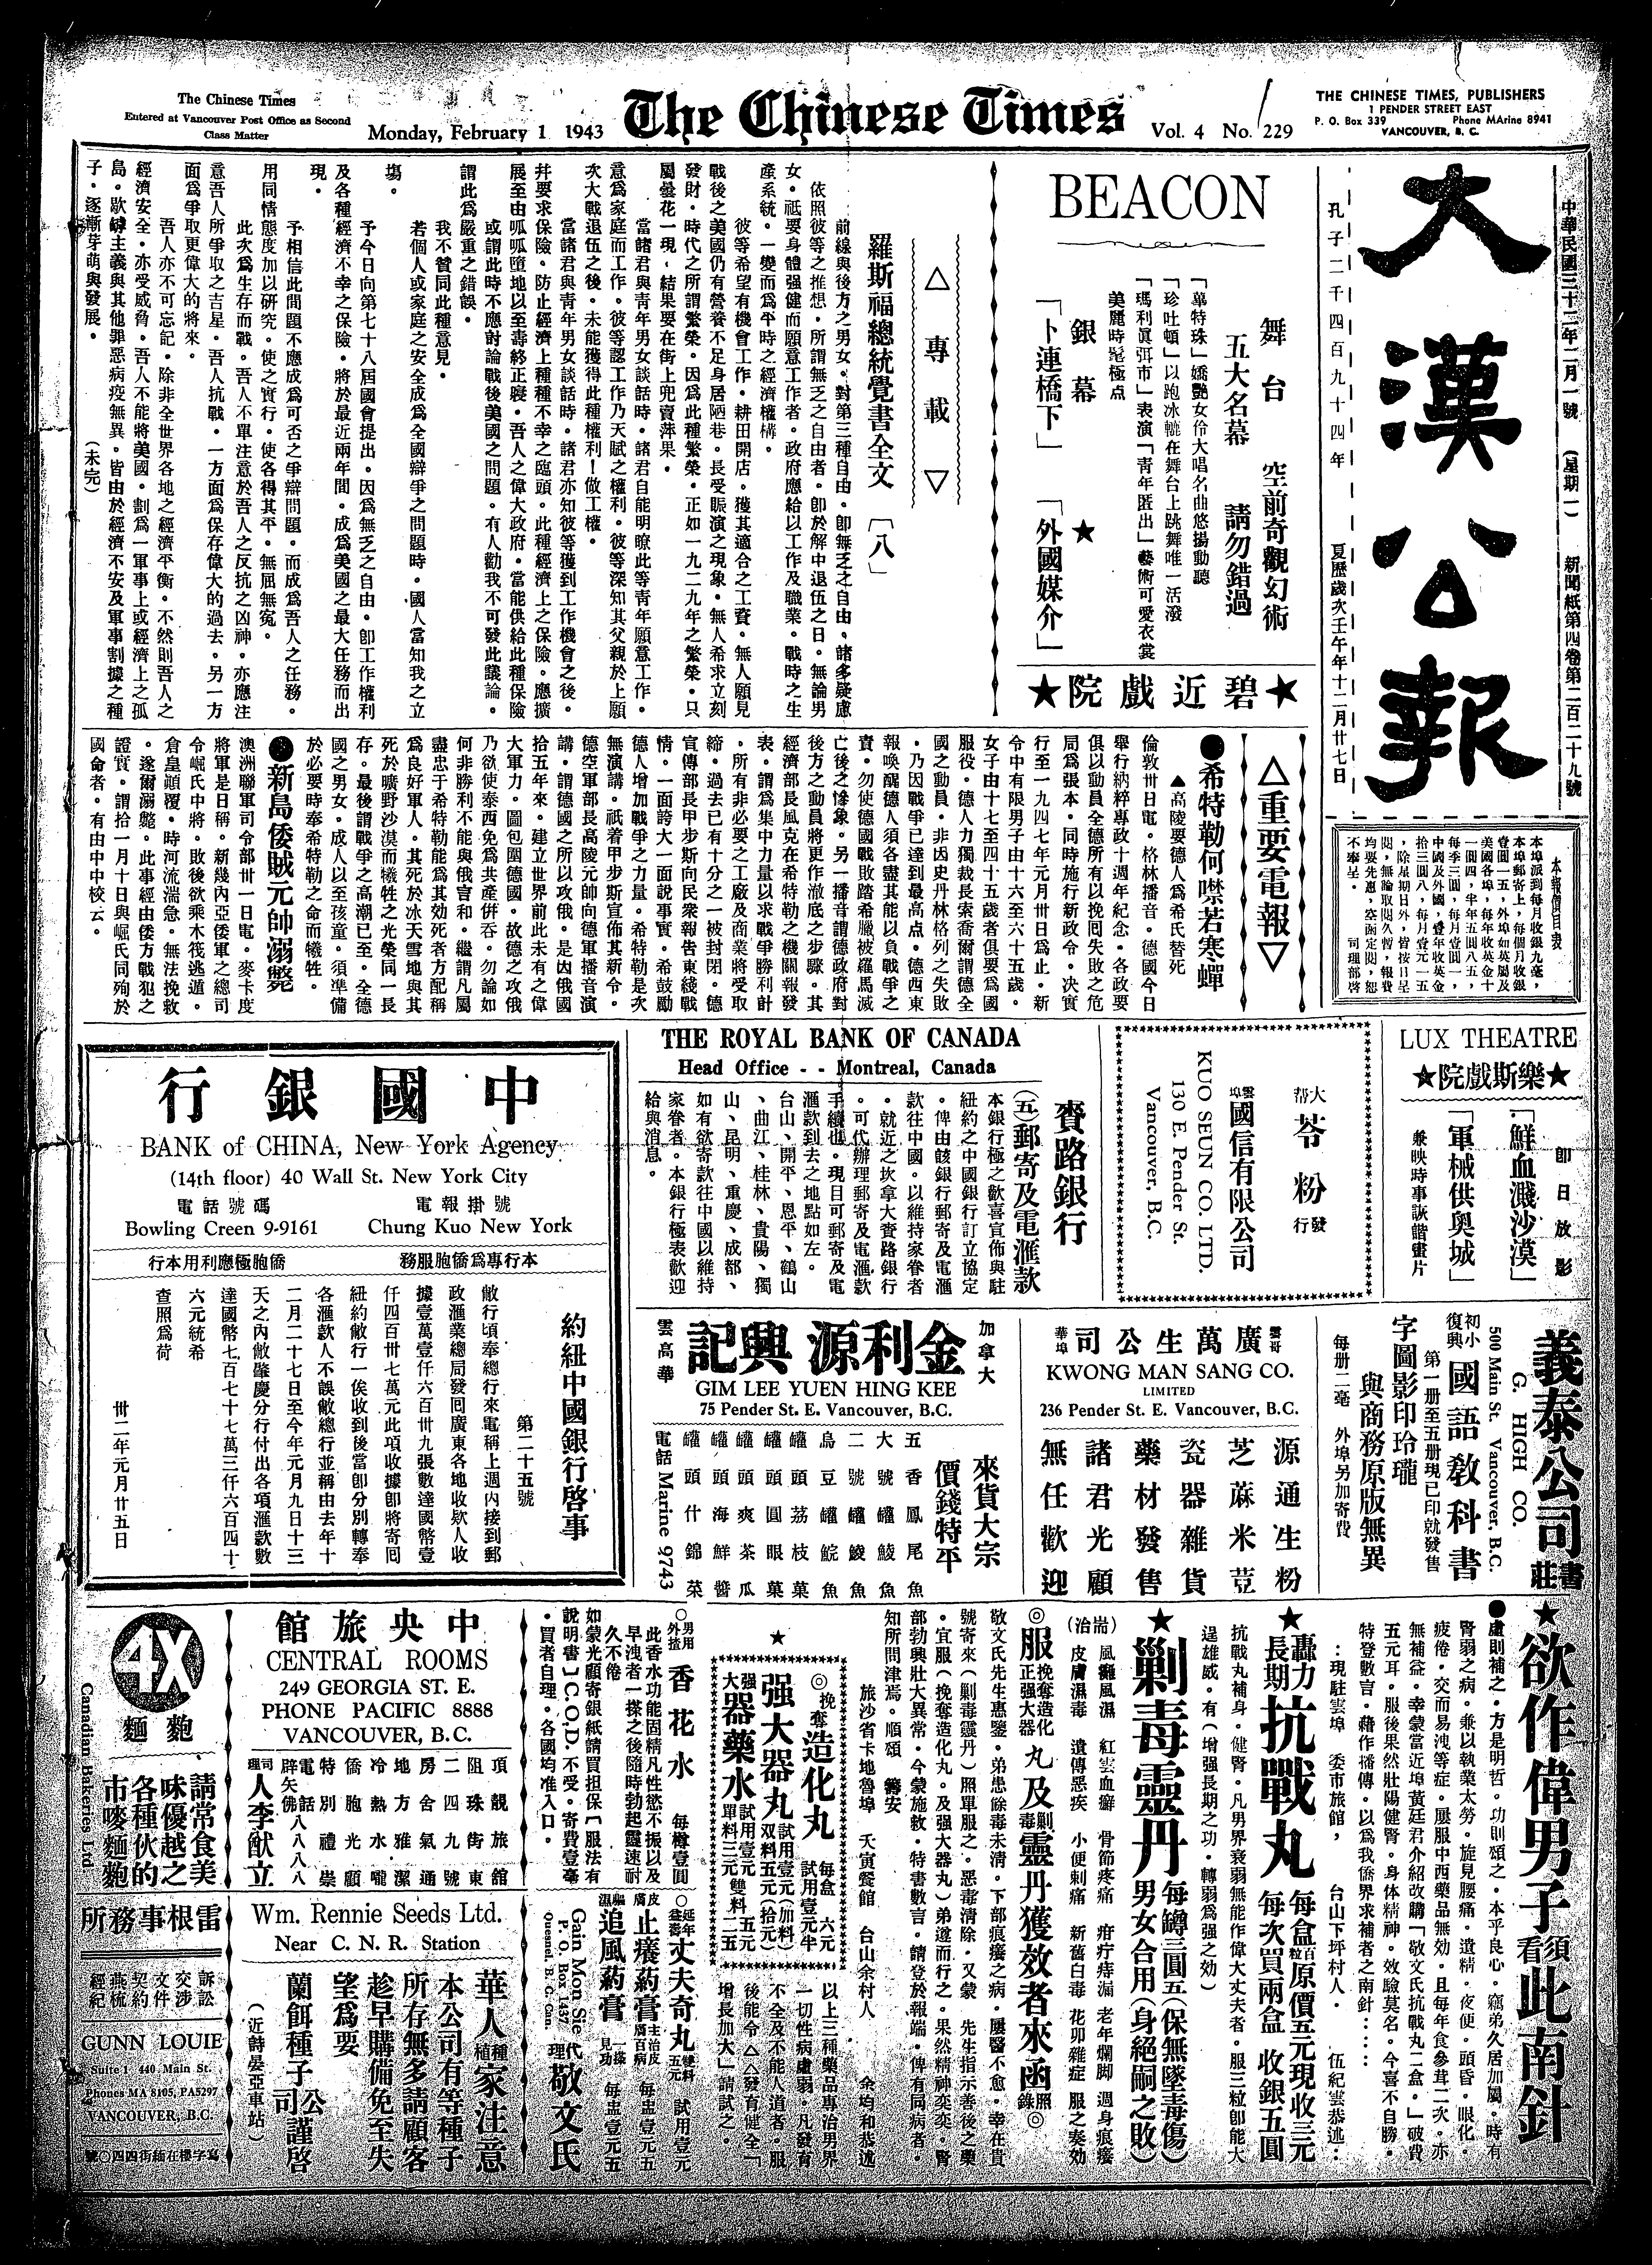 The Chinese Times
Entered at Vancouver Post Office as Second
Class Matter
Monday, February 1 1943
The Chinese Times
Vol. 4 No. 229
THE CHINESE TIMES, PUBLISHERS
1 PENDER STREET EAST
P. O. Box 339 Phone MArine 8941
VANCOUVER, B. C.
中華民國三十二年二月一號 (星期一) 新聞紙第四卷第二百二十九號
大漢公報
孔子二千四百九十四年 夏歷歲次壬午年十二月廿七日
BEACON
舞台 空前奇觀幻術
五大名幕 請勿錯過
「瑪利眞弭市」表演「青年匿出」藝術可愛衣裳
美麗時冠極点
銀幕 ★
「卜連橋下」 「外國媒介」
★碧近戲院★
△專載▽
羅斯福總統覺書全文 〔八〕
前線與後方之男女。對第三種自由。卽無乏之自由。諸多疑慮
依照彼等之推想。所謂無乏之自由者。卽於解中退伍之日。無論男
女。祗要身體强健而願意工作者。政府應給以工作及職業。戰時之生
產系統。一變而爲平時之經濟權構。
彼等希望有機會工作。耕田開店。獲其適合之工資。無人願見
戰後之美國仍有營養不足身居陋巷。長受賑濟之現象。無人希求立刻
發財。時代之所謂繁榮。因爲此種繁榮。正如一九二九年之繁榮。只
屬曇花一現。結果要在街上兜賣萍果。
當諸君與青年男女談話時。諸君自能明瞭此等青年願意工作。
意爲家庭而工作。彼等認工作乃天賦之權利。彼等深知其父親於上願
次大戰退伍之後。未能獲得此種權利!做工權。
當諸君與青年男女談話時。諸君亦知彼等獲到工作機會之後。
幷要求保險。防止經濟上種種不幸之臨頭。此種經濟上之保險。應擴
展至由呱呱墮地以至壽終正寢。吾人之偉大政府。當能供給此種保險
或謂此時不應討論戰後美國之問題。有人勸我不可發此議論。
謂此爲嚴重之錯誤。
我不贊同此種意見。
若個人或家庭之安全成爲全國辯爭之問題時。國人當知我之立
塲。
予今日向第七十八屆國會提出。因爲無乏之自由。卽工作權利
及各種經濟不幸之保險。將於最近兩年間。成爲美國之最大任務而出
現。
予相信此間題不應成爲可否之爭辯問題。而成爲吾人之任務。
用同情態度加以研究。使之實行。使各得其平。無屈無寃。
此次爲生存而戰。吾人不單注意於吾人之反抗之凶神。亦應注
意吾人所爭取之吉星。吾人抗戰。一方面爲保存偉大的過去。另一方
面爲爭取更偉大的將來。
吾人亦不可忘記。除非全世界各地之經濟平衡。不然則吾人之
經濟安全。亦受威脅。吾人不能將美國。劃爲一軍事上或經濟上之孤
島。歐鱒主義與其他罪惡病疫無異。皆由於經濟不安及軍事割據之種
子。逐漸芽萌與發展。 (未完)
△重要電報▽
●希特勒何噤若寒蟬
▲高陵要德人爲希氏替死
倫敦卅日電。格林播音。德國今日
舉行納粹專政十週年紀念。各政要
俱以動員全德所有以挽囘失敗之危
局爲張本。同時施行新政令。决實
行至一九四七年元月卅日爲止。新
令中有限男子由十六至六十五歲。
女子由十七至四十五歲者俱要爲國
服役。德人力獨裁長索喬爾謂德全
國之動員。非因史丹林格列之失敗
。乃因戰爭已達到最高点。德西東
報喚醒德人須各盡其能以負戰爭之
責。勿使德國戰敗踏希臘被羅馬滅
亡後之慘象。另一播音謂德政府對
後方之動員將更作澈底之步驟。其
經濟部長風克在希特勒之機關報發
表。謂爲集中力量以求戰爭勝利計
。所有非必要之工廠及商業將受取
締。過去已有十分之一被封閉。德
宣傳部長甲步斯向民衆報告東綫戰
情。一面誇大一面說事實。希鼓勵
德人增加戰爭之力量。希特勒是次
無演講。祇着甲步斯宣佈其新令。
德空軍部長高陵元帥向德軍播音演
講。謂德國之所以攻俄。是因俄國
拾五年來。建立世界前此未有之偉
大軍力。圖包圍德國。故德之攻俄
乃欲使泰西免爲共產倂吞。勿論如
何非勝利不能與俄言和。繼謂凡屬
盡忠于希特勒能爲其効死者方配稱
爲良好軍人。其死於冰天雪地與其
死於曠野沙漠而犧牲之光榮同一長
存。最後謂戰爭之高潮已至。全德
國之男女。成人以至孩童。須準備
於必要時奉希特勒之命而犧牲。
●新島倭賊元帥溺斃
澳洲聯軍司令部卅一日電。麥卡度
將軍是日稱。新幾內亞倭軍之總司
令崛氏中將。敗後欲乘木筏逃遁。
倉皇顛覆。時河流湍急。無法挽救
。遂爾溺斃。此事經由倭方戰犯之
證實。謂拾一月十日與崛氏同殉於
國命者。有由中中校云。
本報價目表
LUX THEATRE
★樂斯戲院★
卽日放影
「鮮血濺沙漠」
「軍械供奥城」
兼映時事詼諧畫片
大帮 苓粉 發行
雲埠國信有限公司
KUO SEUN CO. LTD.
130 E. Pender St.
Vancouver, B.C.
THE ROYAL BANK OF CANADA
Head Office - - Montreal, Canada
賚路銀行
(五)郵寄及電滙款
本銀行極之歡喜宣佈與駐
紐約之中國銀行訂立協定
。俾由該銀行郵寄及電滙
款往中國。以維持家眷者
。就近之坎拿大賚路銀行
。可代辦理郵寄及電滙款
手續也。現目可郵寄及電
滙款到去之地點如左。
台山、開平、恩平、鶴山
、曲江、桂林、貴陽、獨
山、昆明、重慶、成都、
如有欲寄款往中國以維持
家眷者。本銀行極表歡迎
給與消息。
中國銀行
BANK of CHINA, New York Agency
(14th floor) 40 Wall St. New York City
電話號碼 電報掛號
Bowling Creen 9-9161 Chung Kuo New York
本行專爲僑胞服務 僑胞極應利用本行
約紐中國銀行啓事
第二十五號
敝行頃奉總行來電稱上週內接到郵
政滙業總局發囘廣東各地收欵人收
據壹萬壹仟六百卅九張數達國幣壹
仟四百卅七萬元此項收據卽將寄囘
紐約敝行一俟收到後當卽分別轉奉
各滙款人不誤敝總行並稱由去年十
二月二十七日至今年元月九日十三
天之內敝肇慶分行付出各項滙款數
達國幣七百七十七萬三仟六百四十
六元統希
查照爲荷
卅二年元月廿五日
義泰公司書莊
G. HIGH CO.
500 Main St. Vancouver, B.C.
初小復興 國語教科書
第一册至五册現已印就發售
字圖影印玲瓏
與商務原版無異
每册二毫 外埠另加寄費
雲哥華埠 廣萬生公司
KWONG MAN SANG CO.
LIMITED
236 Pender St. E. Vancouver, B.C.
源通生粉
芝蔴米荳
瓷器雜貨
藥材發售
諸君光顧
無任歡迎
加拿大 金利源興記 雲高華
GIM LEE YUEN HING KEE
75 Pender St. E. Vancouver, B.C.
來貨大宗
價錢特平
五香鳳尾魚
大號罐鯪魚
二號罐鯪魚
烏豆罐鯇魚
罐頭荔枝菓
罐頭圓眼菓
罐頭爽茶瓜
罐頭海鮮醬
罐頭什錦菜
電話 Marine 9743
★欲作偉男子須看此南針
●虛則補之。方是明哲。功則頌之。本乎良心。竊弟久居加屬。時有
腎弱之病。兼以執業太勞。旋見腰痛。遺精。夜便。頭昏。眼化。
疲倦。交而易洩等症。屢服中西藥品無効。且每年食參茸二次。亦
無補益。幸蒙當近埠黃廷君介紹改購「敬文氏抗戰丸二盒。」破費
五元耳。服後果然壯陽健腎。身体精神。效驗莫名。今喜不自勝。
特登數言。藉作播傳。以爲我僑界求補者之南針:::
:現駐雲埠 委市旅館。 台山下坪村人。 伍紀雲恭述:
★轟力長期抗戰丸
每盒百粒原價五元現收三元
每次買兩盒 收銀五圓
抗戰丸補身。健腎。凡男界衰弱無能作偉大丈夫者。服三粒卽能大
逞雄威。有(增强長期之功。轉弱爲强之効)
★剿毒靈丹
每罇三圓五(保無墜毒傷)
男女合用(身絕嗣之敗)
風癱風濕 紅雲血癬 骨節疼痛 疳疔痔漏 老年爛脚 週身痕癢
皮膚濕毒 遺傳惡疾 小便刺痛 新舊白毒 花卯雜症 服之奏効
◎服挽奪造化正强大器丸及剿毒靈丹獲效者來函照錄◎
敬文氏先生惠鑒。弟患餘毒未清。下部痕癢之病。屢醫不愈。幸在貴
號寄來(剿毒靈丹)照單服之。惡毒清除。又蒙 先生指示善後之藥
。宜服(挽奪造化丸。及强大器丸)弟遵而行之。果然精神奕奕。腎
部勃興壯大異常。今蒙施救。特書數言。請登於報端。俾有同病者。
知所問津焉。順頌 籌安
旅沙省卡地魯埠 天寅餐館 台山余村人 余均和恭述
★
◎挽奪造化丸 每盒六元 試用壹元半
强大器丸 試用壹元(加料) 双料五元(拾元)
强大器藥水 試用壹元 五元 單料三元雙料二五
以上三種藥品專治男界
一切性病虛弱。凡發育
不全及不能人道者。服
後能令△△發育健全「
增長加大」請試之。
○男用外搽 香花水 每罇壹圓
此香水功能固精凡性慾不振以及
早洩者一搽之後隨時勃起靈速耐
久不倦
如蒙光顧寄銀紙請買担保〔服法有
說明書〕C.O.D.不受。寄費壹毫
。買者自理。各國均准入口。
○延年益壽丈夫奇丸 雙料五元 試用壹元
皮膚止癢葯膏 主治皮膚百病 每盅壹元五
追風葯膏 一搽見功 每盅壹元五
Gain Mon Sie
P. O. Box 1437
Quesnel, B. C. Can.
代理 敬文氏
中央旅館
CENTRAL ROOMS
249 GEORGIA ST. E.
PHONE PACIFIC 8888
VANCOUVER, B.C.
頂靚旅舘
阻珠街東
二四九號
房舍氣通
地方雅潔
冷熱水嚨
僑胞光顧
特別禮崇
電話八八八八
司理人李猷立
4X
麵麭
請常食美
味優越之
各種伙的
市嘜麵麭
Canadian Bakeries, Ltd
Wm. Rennie Seeds Ltd.
Near C. N. R. Station
華人種植家注意
本公司有等種子
所存無多請顧客
趁早購備免至失
望爲要
蘭餌種子公司謹啓
(近詩晏亞車站)
雷根事務所
訴訟
交涉
文件
契約
燕梳
經紀
GUNN LOUIE
Suite 1 440 Main St.
Phones MA 8105, PA5297
VANCOUVER, B.C.
寫字樓在緬街四四〇號